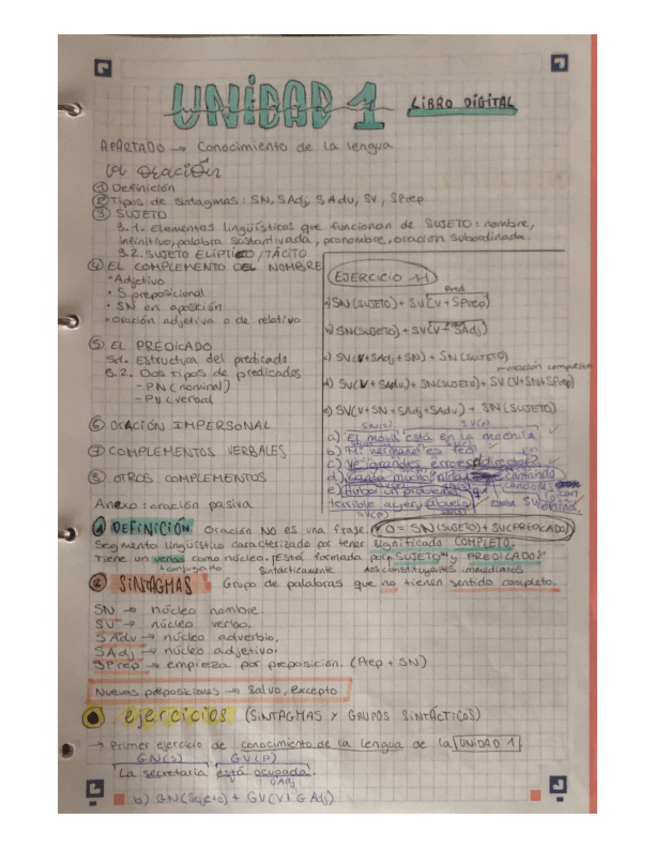 UNIDAD 1 LIBRO DIGITAL
APARTADO → Conocimiento de la lengua
La Oración
① Definición
② Tipos de sintagmas: SN, SAdj, SAdv, SV, SPrep
③ SUJETO
3.1. Elementos lingüísticos que funcionan de SUJETO: nombre,
infinitivo, palabra sustantivada, pronombre, oración subordinada.
3.2. SUJETO ELÍPTICO/TÁCITO
④ EL COMPLEMENTO DEL NOMBRE
• Adjetivo
• S preposicional
• SN en aposición
• Oración adjetiva o de relativo
⑤ EL PREDICADO
5.1. Estructura del predicado
5.2. Dos tipos de predicados
- PN (nominal)
- PV (verbal)
⑥ ORACIÓN IMPERSONAL
⑦ COMPLEMENTOS VERBALES
⑧ OTROS COMPLEMENTOS
Anexo: oración pasiva
EJERCICIO 11
a) SN (SUJETO) + SV (V + SPrep)
b) SN (SUJETO) + SV (V + SAdj)
c) SV (V + SAdj + SN) + SN (SUJETO)
oración compuesta
d) SV (V + SAdv) + SN (SUJETO) + SV (V + SN + SPrep)
e) SV (V + SN + SAdj + SAdv) + SN (SUJETO)
SN(S) SV(P)
a) El móvil está en la mochila
b) Mi hermano es feo
c) Ve grandes errores
d) Canta mucho cantando
canciones con
e) Hubo un problema
terrible ayer
① DEFINICIÓN. Oración NO es una frase. O = SN (SUJETO) + SV (PREDICADO)
Segmento lingüístico caracterizado por tener significado COMPLETO.
Tiene un verbo como núcleo. Está formada por SUJETO y PREDICADO
conjugado Sintácticamente dos constituyentes inmediatos
② SINTAGMAS Grupo de palabras que no tienen sentido completo.
SN → núcleo nombre.
SV → núcleo verbo.
SAdv → núcleo adverbio.
SAdj → núcleo adjetivo.
SPrep → empieza por preposición. (Prep + SN)
Nuevas preposiciones → Salvo, excepto
ejercicios (SINTAGMAS Y GRUPOS SINTÁCTICOS)
→ Primer ejercicio de conocimiento de la lengua de la UNIDAD 1
GN(S) GV(P)
La secretaria está ocupada.
GAdj
b) GN (Sujeto) + GV (V + G Adj)